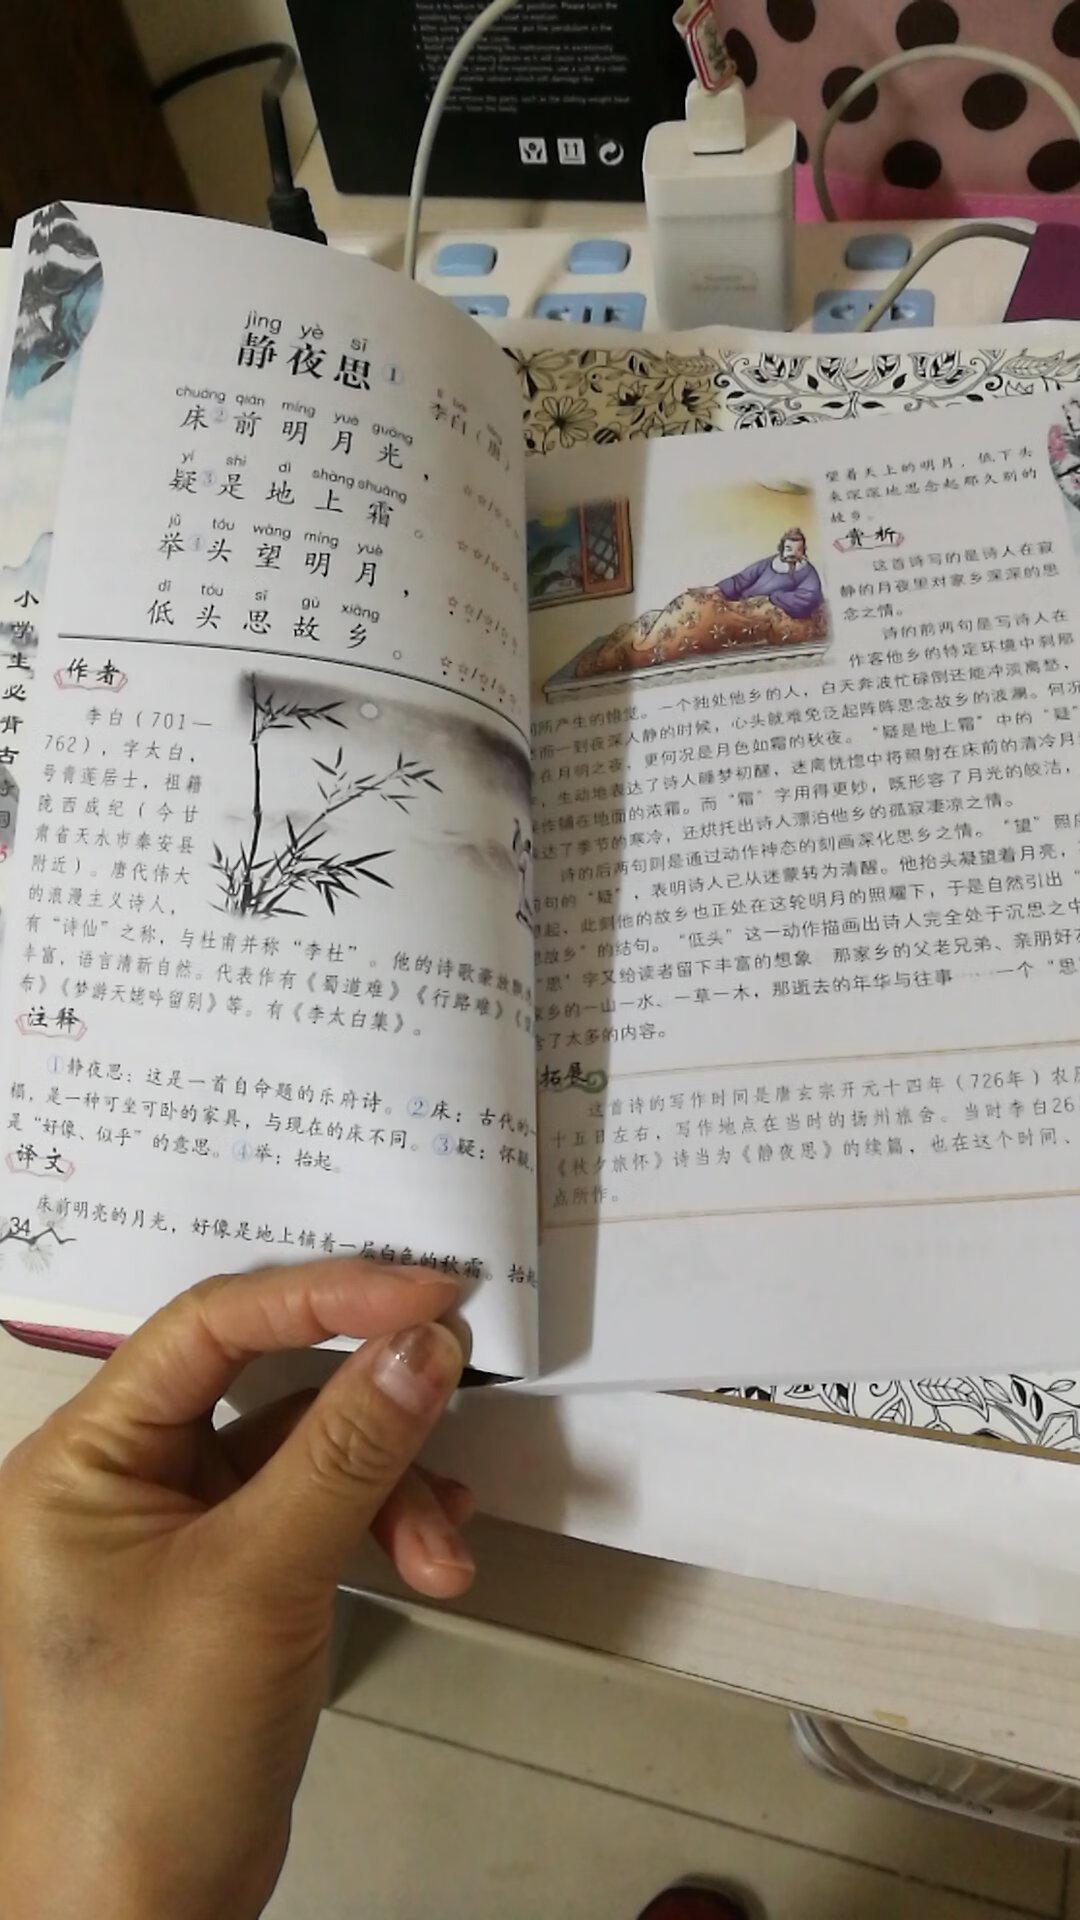 jìng yè sī
静夜思①
李白（唐）
chuáng qián míng yuè guāng
床②前明月光，
yí shì dì shàng shuāng
疑③是地上霜。
jǔ tóu wàng míng yuè
举④头望明月，
dī tóu sī gù xiāng
低头思故乡。
作者
李白（701—
762），字太白，
号青莲居士，祖籍
陇西成纪（今甘
肃省天水市秦安县
附近）。唐代伟大
的浪漫主义诗人，
有“诗仙”之称，与杜甫并称“李杜”。他的诗歌豪放
丰富，语言清新自然。代表作有《蜀道难》《行路难》
布》《梦游天姥吟留别》等。有《李太白集》。
注释
①静夜思：这是一首自命题的乐府诗。②床：古代的
榻，是一种可坐可卧的家具，与现在的床不同。③疑：怀疑，
是“好像、似乎”的意思。④举：抬起。
译文
床前明亮的月光，好像是地上铺着一层白色的秋霜。抬起
34
小学生必背古
望着天上的明月，低下头
来深深地思念起那久别的
故乡。
赏析
这首诗写的是诗人在寂
静的月夜里对家乡深深的思
念之情。
诗的前两句是写诗人在
作客他乡的特定环境中刹那
所产生的错觉。一个独处他乡的人，白天奔波忙碌倒还能冲淡离愁，
而一到夜深人静的时候，心头就难免泛起阵阵思念故乡的波澜。何况
在月明之夜，更何况是月色如霜的秋夜。“疑是地上霜”中的“疑”
生动地表达了诗人睡梦初醒，迷离恍惚中将照射在床前的清冷月
作铺在地面的浓霜。而“霜”字用得更妙，既形容了月光的皎洁，
达了季节的寒冷，还烘托出诗人漂泊他乡的孤寂凄凉之情。
诗的后两句则是通过动作神态的刻画深化思乡之情。“望”照应
句的“疑”，表明诗人已从迷蒙转为清醒。他抬头凝望着月亮，
起，此刻他的故乡也正处在这轮明月的照耀下，于是自然引出“
故乡”的结句。“低头”这一动作描画出诗人完全处于沉思之中
“思”字又给读者留下丰富的想象 那家乡的父老兄弟、亲朋好
乡的一山一水、一草一木，那逝去的年华与往事……一个“思
含了太多的内容。
拓展
这首诗的写作时间是唐玄宗开元十四年（726年）农历
十五日左右，写作地点在当时的扬州旅舍。当时李白26
《秋夕旅怀》诗当为《静夜思》的续篇，也在这个时间、
点所作。